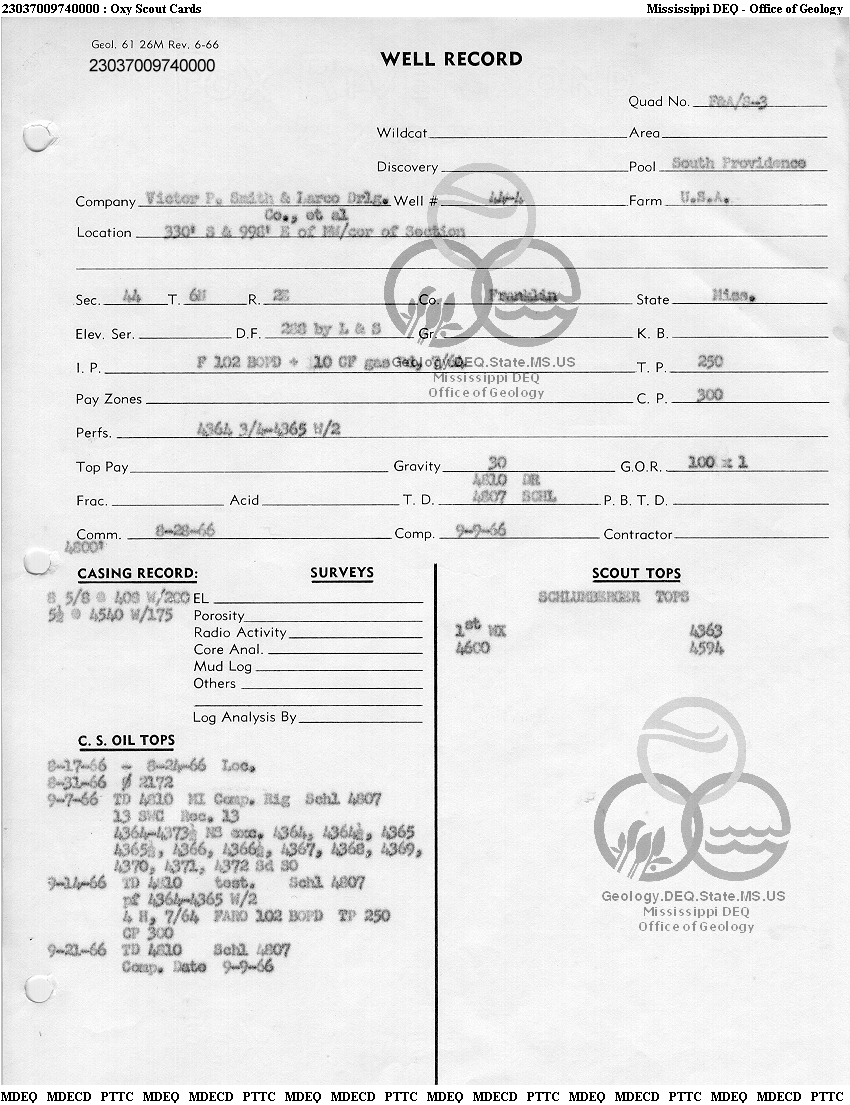 23037009740000 : Oxy Scout Cards Mississippi DEQ - Office of Geology
Geol. 61 26M Rev. 6-66
23037009740000
WELL RECORD
Quad No. F2A/S-3
Wildcat Area
Discovery Pool South Providence
Company Victor P. Smith & Larco Drlg. Well # 44-4 Farm U.S.A.
Co., et al
Location 330' S & 998' E of NW/cor of Section
Sec. 44 T. 6N R. 2E Co. Franklin State Miss.
Elev. Ser. D.F. 288 by L & S Gr. K. B.
I. P. F 102 BOPD + 10 CF gas 7/64 T. P. 250
Geology.DEQ.State.MS.US
Mississippi DEQ
Office of Geology
Pay Zones C. P. 300
Perfs. 4364 3/4-4365 W/2
Top Pay Gravity 30 G.O.R. 100 x 1
4810 DR
Frac. Acid T. D. 4807 SCHL P. B. T. D.
Comm. 8-28-66 Comp. 9-9-66 Contractor
4800'
CASING RECORD: SURVEYS SCOUT TOPS
8 5/8 @ 408 W/200 EL SCHLUMBERGER TOPS
5½ @ 4540 W/175 Porosity
Radio Activity 1st WX 4363
Core Anal. 4600 4594
Mud Log
Others
Log Analysis By
C. S. OIL TOPS
8-17-66 - 8-24-66 Loc.
8-31-66 Ø 2172
9-7-66 TD 4810 MI Comp. Rig Schl 4807
13 SWC Rec. 13
4364-4373½ NS exc. 4364, 4364½, 4365
4365½, 4366, 4366½, 4367, 4368, 4369,
4370, 4371, 4372 Sd SO
9-14-66 TD 4810 test. Schl 4807
pf 4364-4365 W/2
4 H, 7/64 FARO 102 BOPD TP 250
CP 300
9-21-66 TD 4810 Schl 4807
Comp. Date 9-9-66
Geology.DEQ.State.MS.US
Mississippi DEQ
Office of Geology
MDEQ MDECD PTTC MDEQ MDECD PTTC MDEQ MDECD PTTC MDEQ MDECD PTTC MDEQ MDECD PTTC MDEQ MDECD PTTC